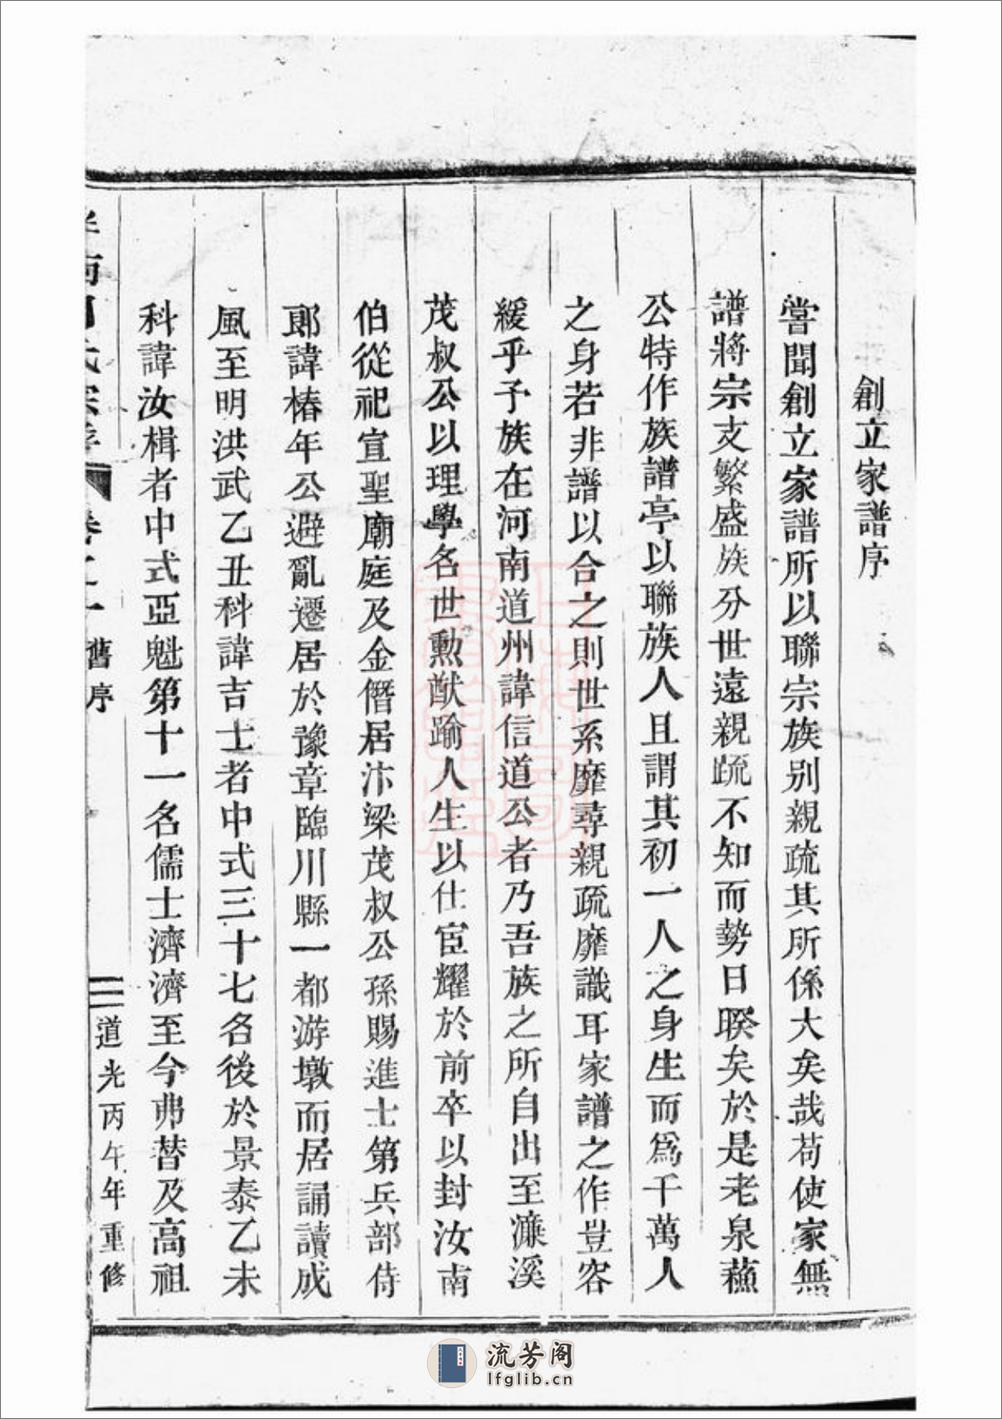 創立家譜序
嘗聞創立家譜所以聯宗族别親疏其所係大矣哉苟使家無
譜將宗支繁盛族分世遠親疏不知而勢日睽矣於是老泉蘓
公特作族譜亭以聯族人且謂其初一人之身生而爲千萬人
之身若非譜以合之則世系靡尋親疏靡識耳家譜之作豈容
緩乎予族在河南道州諱信道公者乃吾族之所自出至濂溪
茂叔公以理學名世勲猷踰人生以仕宦耀於前卒以封汝南
伯從祀宣聖廟庭及金僭居汴梁茂叔公孫賜進士第兵部侍
郎諱椿年公避亂遷居於豫章臨川縣一都游墩而居誦讀成
風至明洪武乙丑科諱吉士者中式三十七名後於景泰乙未
科諱汝楫者中式亞魁第十一名儒士濟濟至今弗替及高祖
氏宗譜 卷之一 舊序 二 道光丙午年重修
流芳阁
lfglib.cn